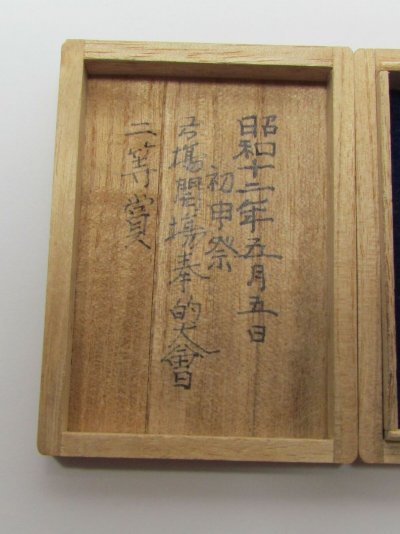 昭和十二年五月五日
初申祭
弓場開場奉的大會
二等賞